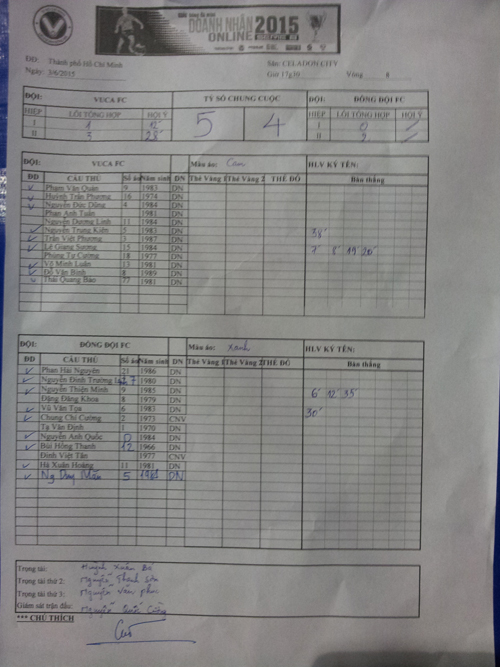 DOANH NHÂN 2015
ONLINE
ĐĐ: Thành phố Hồ Chí Minh Sân: CELADON CITY
Ngày: 3/6/2015 Giờ 17g30 Vòng 8
ĐỘI: VUCA FC TỶ SỐ CHUNG CUỘC ĐỘI: ĐỒNG ĐỘI FC
HIỆP LỖI TỔNG HỢP HỘI Ý 5 4 HIỆP LỖI TỔNG HỢP HỘI Ý
I 1 12' I 0
II 3 28' II 2
ĐỘI: VUCA FC Màu áo: Cam HLV KÝ TÊN:
ĐD CẦU THỦ Số áo Năm sinh DN Thẻ Vàng 1 Thẻ Vàng 2 THẺ ĐỎ Bàn thắng
Phạm Văn Quán 9 1983 DN
Huỳnh Trần Phương 16 1974 DN
Nguyễn Đức Dũng 4 1984 DN
Phan Anh Tuấn 1981 DN
Nguyễn Dương Linh 11 1984 DN
Nguyễn Trung Kiên 5 1983 DN 38'
Trần Việt Phương 3 1987 DN
Lê Giang Sương 15 1984 DN 7' 8' 19 20'
Phùng Tự Cường 18 1977 DN
Võ Minh Luân 13 1981 DN
Đỗ Văn Bình 8 1989 DN
Thái Quang Bảo 77 1981 DN
ĐỘI: ĐỒNG ĐỘI FC Màu áo: Xanh HLV KÝ TÊN:
ĐD CẦU THỦ Số áo Năm sinh DN Thẻ Vàng 1 Thẻ Vàng 2 THẺ ĐỎ Bàn thắng
Phan Hải Nguyên 21 1986 DN
Nguyễn Đình Trường 7 1980 DN
Nguyễn Thiện Minh 9 1985 DN 6' 12' 35'
Đặng Đăng Khoa 8 1979 DN
Vũ Văn Tọa 6 1983 DN 30'
Chung Chí Cường 2 1973 CNV
Tạ Văn Định 1 1970 DN
Nguyễn Anh Quốc 0 1984 DN
Bùi Hồng Thanh 12 1966 DN
Đinh Việt Tân 1977 CNV
Hà Xuân Hoàng 11 1981 DN
Ng Duy 5 DN
Trọng tài: Huỳnh Xuân
Trọng tài thứ 2: Nguyễn Thanh
Trọng tài thứ 3: Nguyễn Văn
Giám sát trận đấu: Nguyễn Quốc Cường
*** CHÚ THÍCH